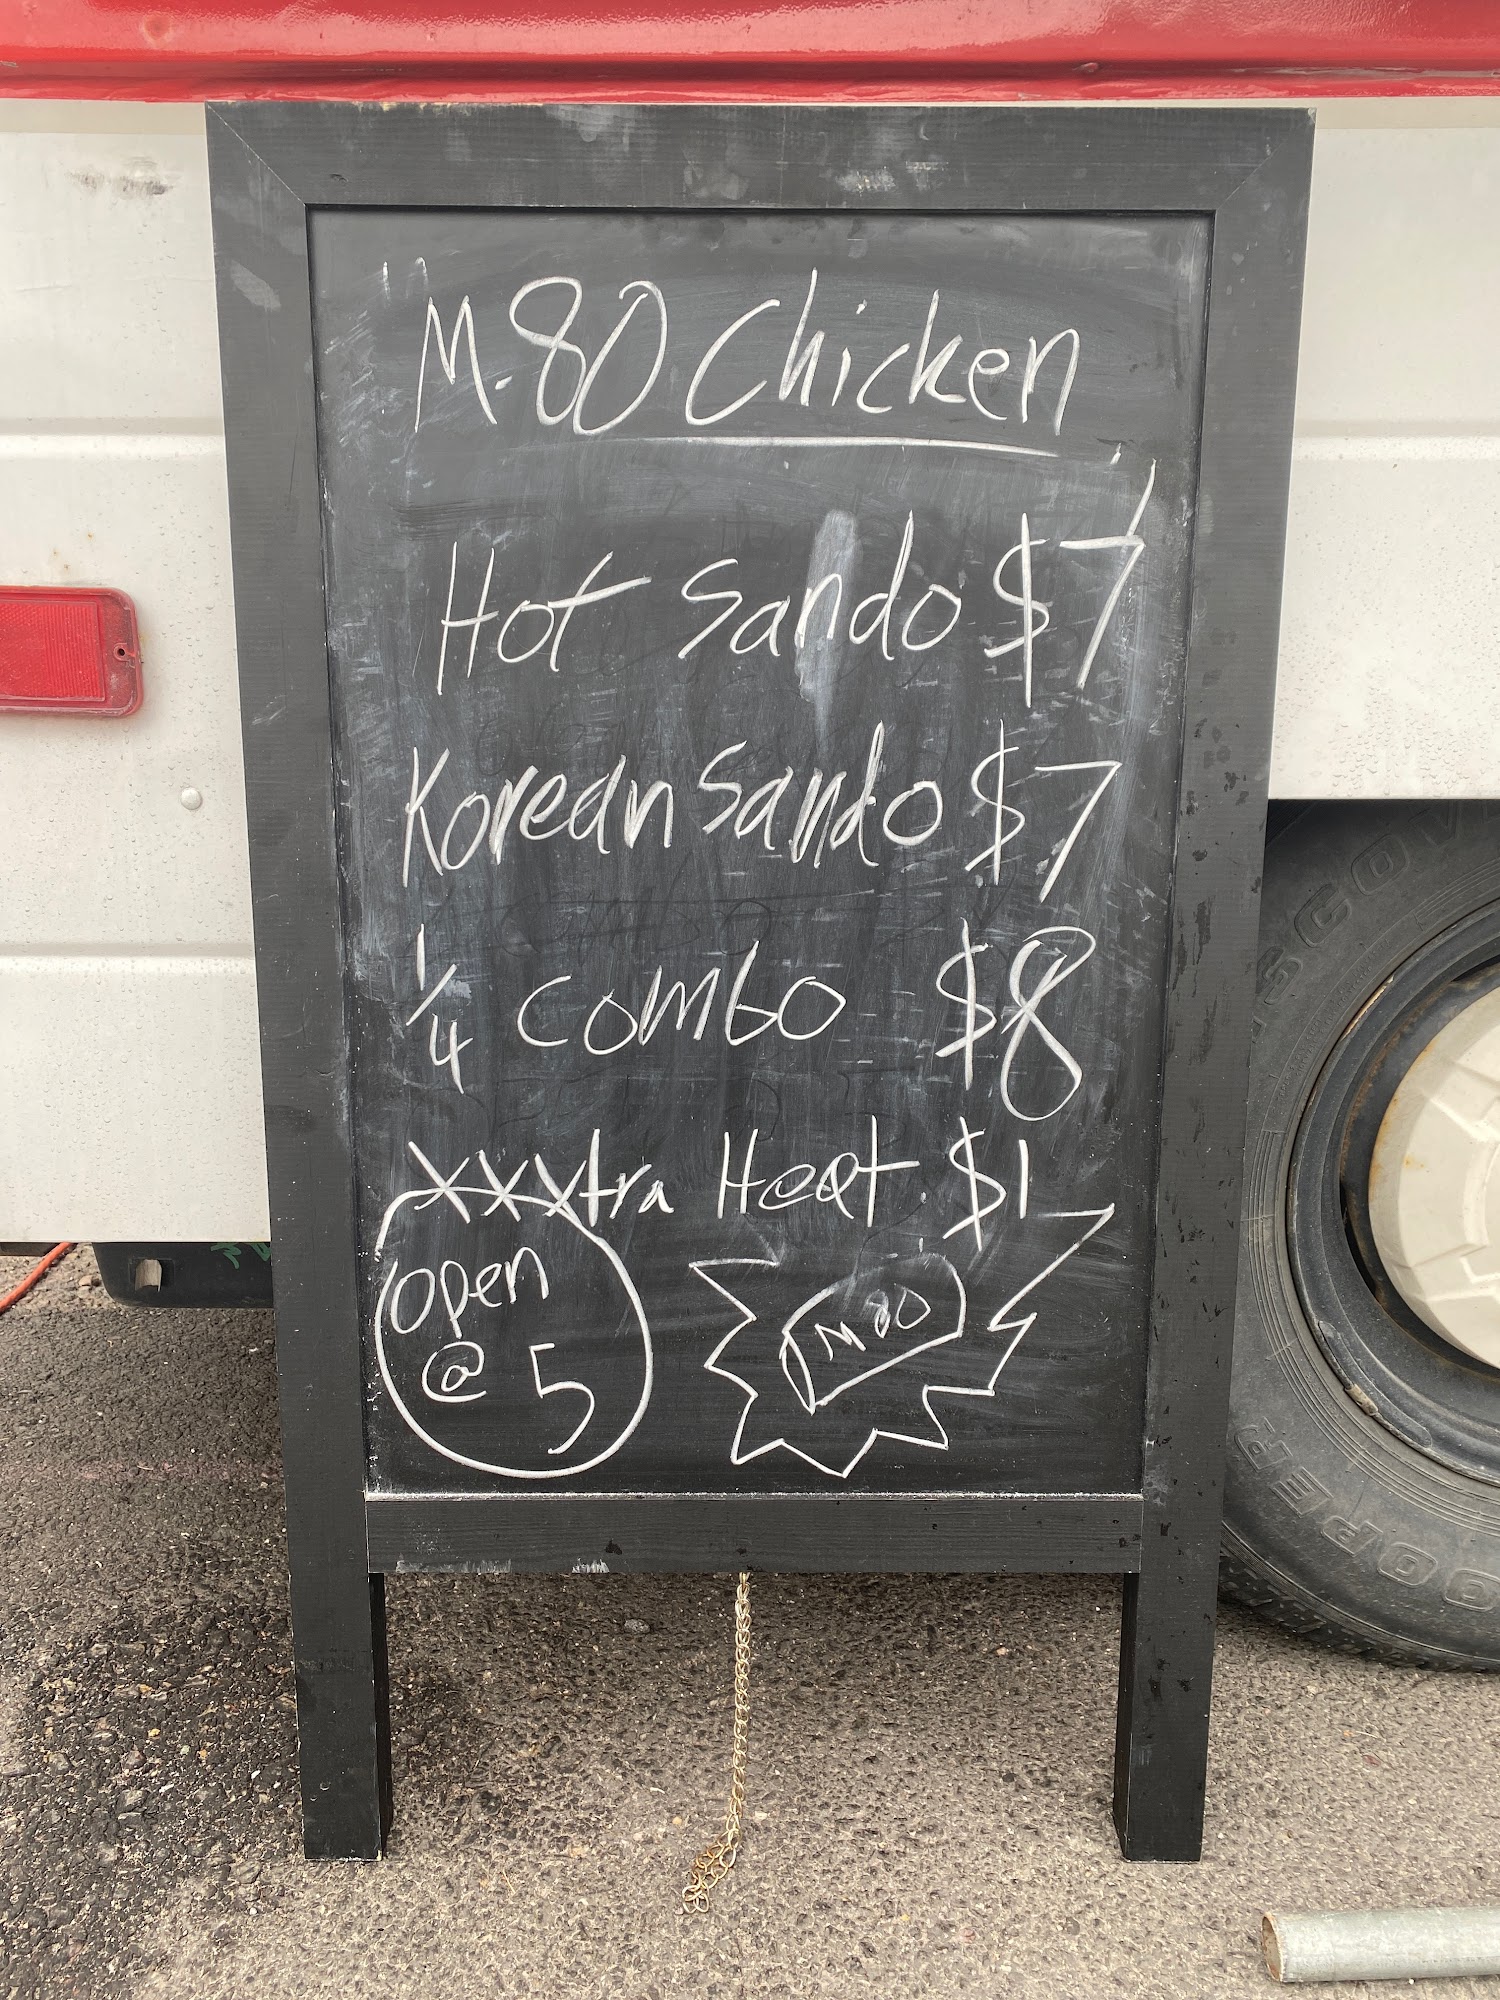 M-80 Chicken
Hot Sando $7
Korean Sando $7
1/4 combo $8
XXXtra Heat $1
open
@ 5
M 80
SCOV
OOPER